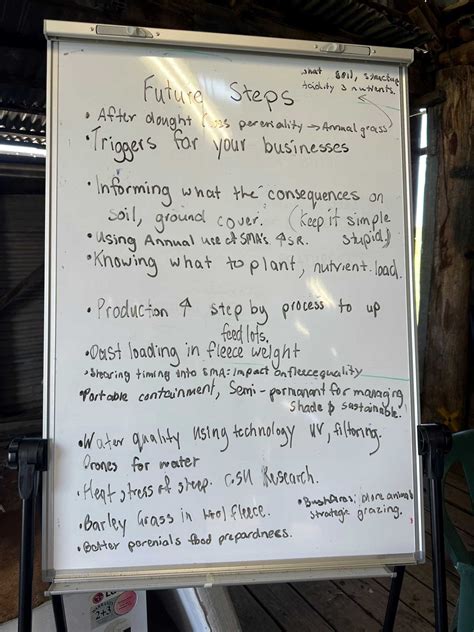 what soil, structure
toxicity & nutrients.
Future Steps
• After dought loss pereniality → Annual grass
• Triggers for your businesses
• Informing what the consequences on
soil, ground cover. (Keep it simple
stupid)
• Using Annual use of SMA's ↑ SR.
• Knowing what to plant, nutrient load.
• Production ↑ step by process to up
feed lots.
• Dust loading in fleece weight
• Shearing timing into SMA = impact on fleece quality
• Portable containment, Semi-permanant for managing
shade & sustainable.
• Water quality using technology UV, filtering.
Drones for water
• Heat stress of steep. CSU Research.
• Barley Grass in fleece.
• more animals
strategic grazing.
• Better perenials food prepardness.